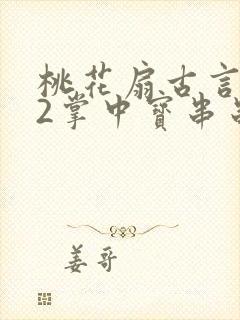 桃花扇古言
2掌中寶串
姜哥